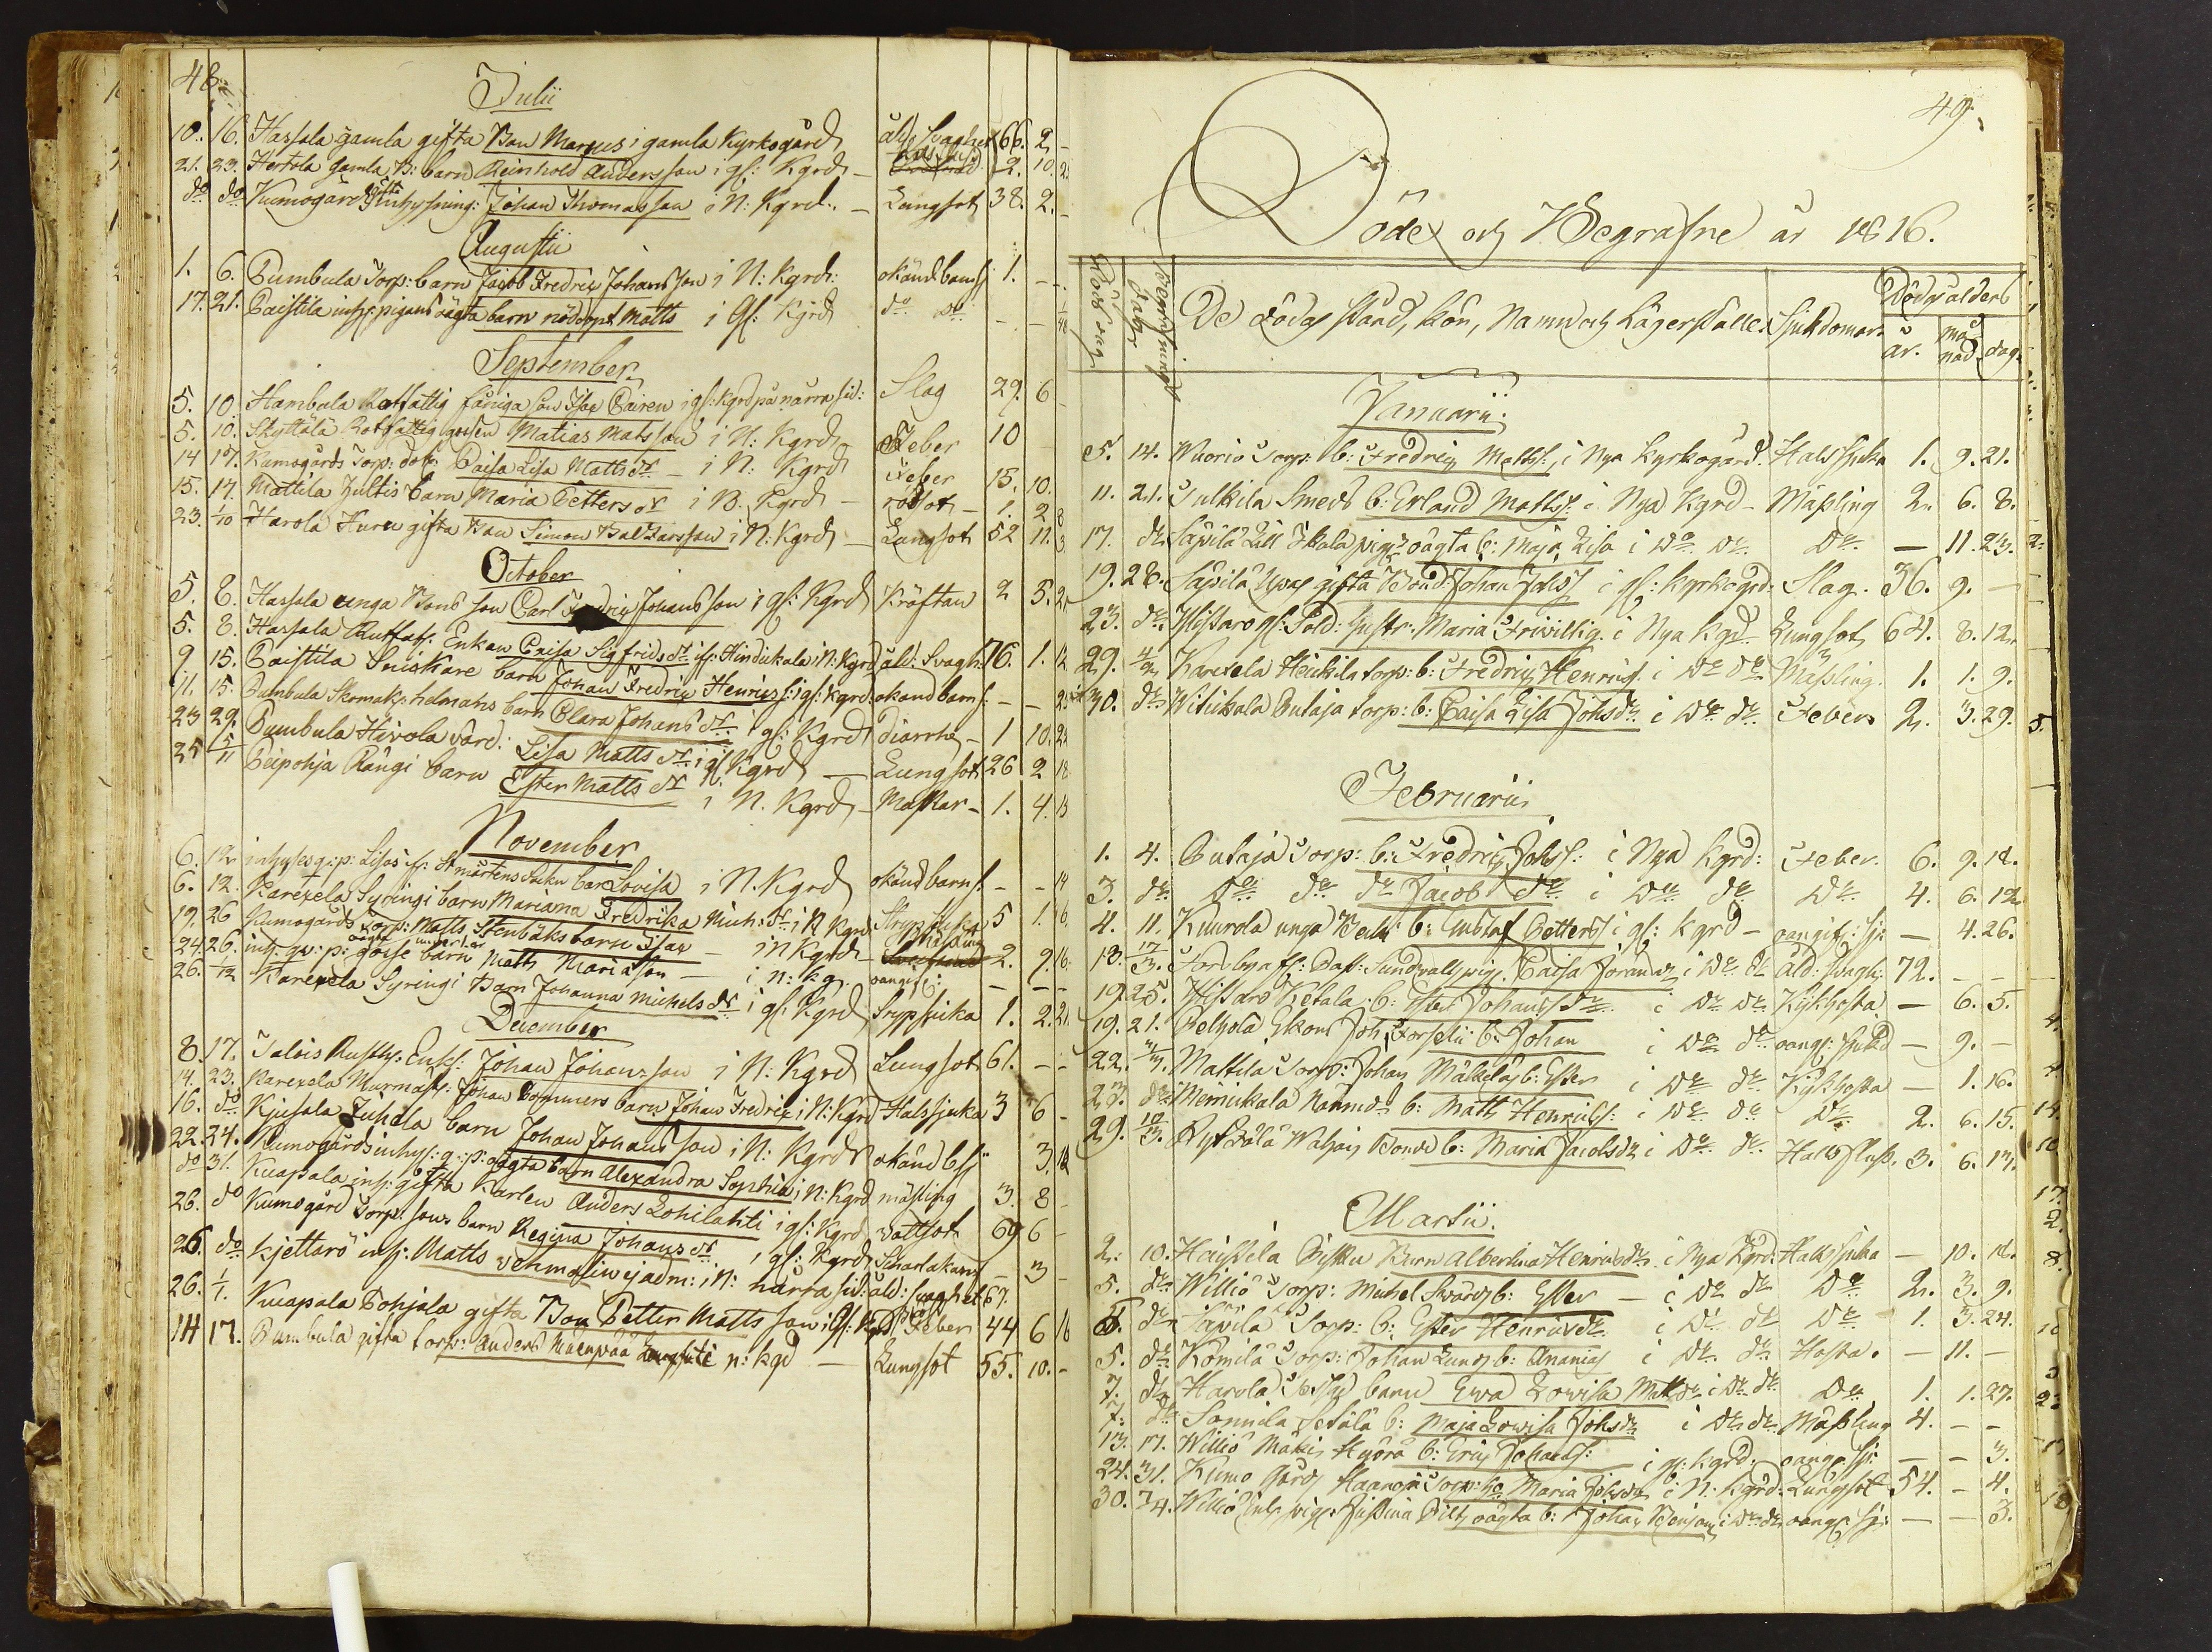 48.
Julii
10. 16. Hassala gamla gifta Bon Marcus i gamla Kyrkogård ålds svaghet 66. 2 -
21. 23. Hertola gamla B: barn Reinhold Andersson i gl: Kgrd - 2. 10. 2
do do Kumogård gifta Inhysning: Johan Thomasson i N: Kgrd. - Lungsot 38. 2. -
Augustii
1. 6. Pumbula Torp: barn Jacob Fredric Johansson i N: Kgrd: okänd barnsj: 1. - -
17. 21. Paistila inhs: pigans oägta barn nöddöpt Matts i Gl: Kgrd do do - -
September
5. 10. Hambula Rotfattig fåniga son Isac Pairen i gl: Kgrd på norra sid: Slag 29. 6
5. 10. Skyttälä Rotfattig gossen Matias Matsson i N: Kgrd Feber 10
14 17. Kumogårds Torp: dotr: Caisa Lisa Mattsdr - i N: Kgrd Feber 15. 10.
15. 17. Mattila Jultis barn Maria Pettersdr i N. Kgrd - rödsot - 1. 2 8
23. 1/10 Harola Huru gifta Bon Simon Baltzarsson i N: Kgrd - Lungsot 52 11. 3.
October
5. 8. Hassala unga Bons son Carl Fredric Johansson i gl: Kgrd Kräftan 2 5. 2
5. 8. Hassala Rotfatt: Enkan Caisa Sigfridsdr ifr: Hindickala i N: Kgrd åld: Svagh: 76. 1. 12
9. 15. Paistila Sniskare barn Johan Fredric Henricss: i gl: Kgrd. okand barnsj: - - 2
11. 15. Pumbula Skomak: holmens barn Clara Johansdr: i gl: Kgrd Diarrhe - 1 10. 22
23 29. Pumbula Hivola värd: Lisa Matts dr i gl Kgrd - Lungsot 26 2 18
25 5/11 Peipohja Rångi barn Ester Matts dr i N. Kgrd - Maskar - 1. 4. 13
November
6. 12 inhyses q: p: Lisas ifr: St mårtens Sockn bar Lovisa i N. Kgrd okänd barnsj. - - 14
6. 12. Karexela Syringi barn Mariana Fredrika Mich: dr i N Kgrd Strypsjuka 5 1. 6
19. 26 Kumogårds Torp: Matts Stenbäks barn Isac - i N Kgrd Mässling 2. 9. 16
24. 26. inh: qv: p: oägta gosse barn Matts Mariason - i n: kg. oangif: - - -
26. 1/12 Karexela Syringi Barn Johanna Michelsdr i gl Kgrd Srypsjuka 1. 2. 21
December
8. 17. Talois Rusth: Enkl: Johan Johansson i N: Kgrd Lungsot 61. - -
14. 23. Karexela Murmäst: Johan Bommers barn Johan Fredric i N: Kgrd Halssjuka 3 6 -
16. do Kjusala Juhola barn Johan Johansson i N: Kgrd okänd bsj 3. 12
22. 24. Kumogårds inhys: q: p: oägta barn Alexandra Sophia i N: Kgrd mässling 3. 8 -
do 31. Kuapsala inh: gifta Karlen Anders Lohilahti i gl: Kgrd Vattsot 69 6 -
26. do Kumogård Torp: sons barn Regina Johansdr i gl: Kgrd Scharlakans - 3 -
26. do kjettarö inh: Matts Vehmasiwij adm: i N: norra sid: åld: svaghet 67.
26. 1/1. Kuapsala Pohjala gifta Bon Petter Mattsson i Gl: Kgrd Feber 44 6 16
14 17. Pumbula gifta torp: Anders Mäenpää Lungsuti n: kgd - Lungsot 55. 10. -
49.
Döde och Begrafne år 1816.
Döds dag
Begrafnings dagar
De Dödas stånd, kön, Namn och Lägerställe.
Sjukdomar.
Dödas ålders
år. månad dag.
Januarii.
5. 14. Wuorio Torp: b: Fredric Matts: i Nya Kyrkogård. Halssjuka 1. 9. 21.
11. 21. Tulkila Smeds b: Erland Matts: i Nya Kgrd - Mässling 2. 6. 8.
17. do Säpilä Lill Ikala pigs oägta b: Maja Lisa i do do do - 11. 23.
19. 28. Säpilä Uppas gifta Bond: Johan Johs: i gl: Kyrkogrd: Slag. 36. 9. -
23. do Ylistaro gl: Sold: Hustr: Maria Friwillig. i Nya Kgrd - Lungsot 64. 8. 12.
29. 4/2 Karexela Heickila torp: b: Fredric Henrics: i do do Mässling. 1. 1. 9.
30. do Witickala Outaja torp: b: Caisa Lisa Johsdr i do do Feber 2. 3. 29.
Februarii
1. 4. Outaja Torp: b: Fredric Johs: i Nya Kgrd: Feber. 6. 9. 18.
3. do do do do Jacob do i do do do 4. 6. 12
4. 11. Kuurola unga Bonds b: Gustaf Petters: i gl: kgrd - oangif: sj: - 4. 26.
13. 17/3. Forsbya fl: Past: Sundvalls pig. Caisa Joransdr i do do åld: svagh: 72. - -
19. 25. Ylistaro Ketala: b: Ester Johansdr i do do Kikhosta - 6. 5.
19. 21. Pelhola Ekon: Joh: Forselii b: Johan i do do oangf: sjukd - 9. -
22. 3/3. Mattila Torp: Johan Mäkeläs b: Ester i do do Kikhosta - 1. 16.
23. do Meinickala Nämnds b: Matts Henrics: i do do do 2. 6. 15.
29. 10/3. Rystälä Wahais Bonde b: Maria Jacobsdr i do do Halsfluss. 3. 6. 13.
Martii.
2. 10. Haistila Giss: Barn Albertina Henricsdr i Nya Kgrd: Halssjuka - 10. 12.
5. do Williö Torp: Michel Swärds b: Ester - i do do do 2. 3. 9.
5. do Säpilä Torp: b: Ester Henricsdr i do do do 1. 3. 24.
5. do Kömilä Torp: Johan Lunds b: Ananias i do do Hosta. - 11. -
7. do Harola barn Ewa Lowisa Mattsdr i do do do 1. 1. 27.
7. do Sonnila Setälä b: Maja Lowisa Johsdr i do do Mässling 4. - -
13. 17. Williö Matis Hyörä b: Eric Johans: i gl: kgrd. oangf: sj: - - 3.
24. 31. Kumo Gårds Haanoja Torp: ho Maria Johsdr i N: Kgrd: Lungsot 54. - 4.
30. 7/4. Williö Inh: pig: Justina oägta b: Johan Benjam: i do do oangf: sj: - - 3.